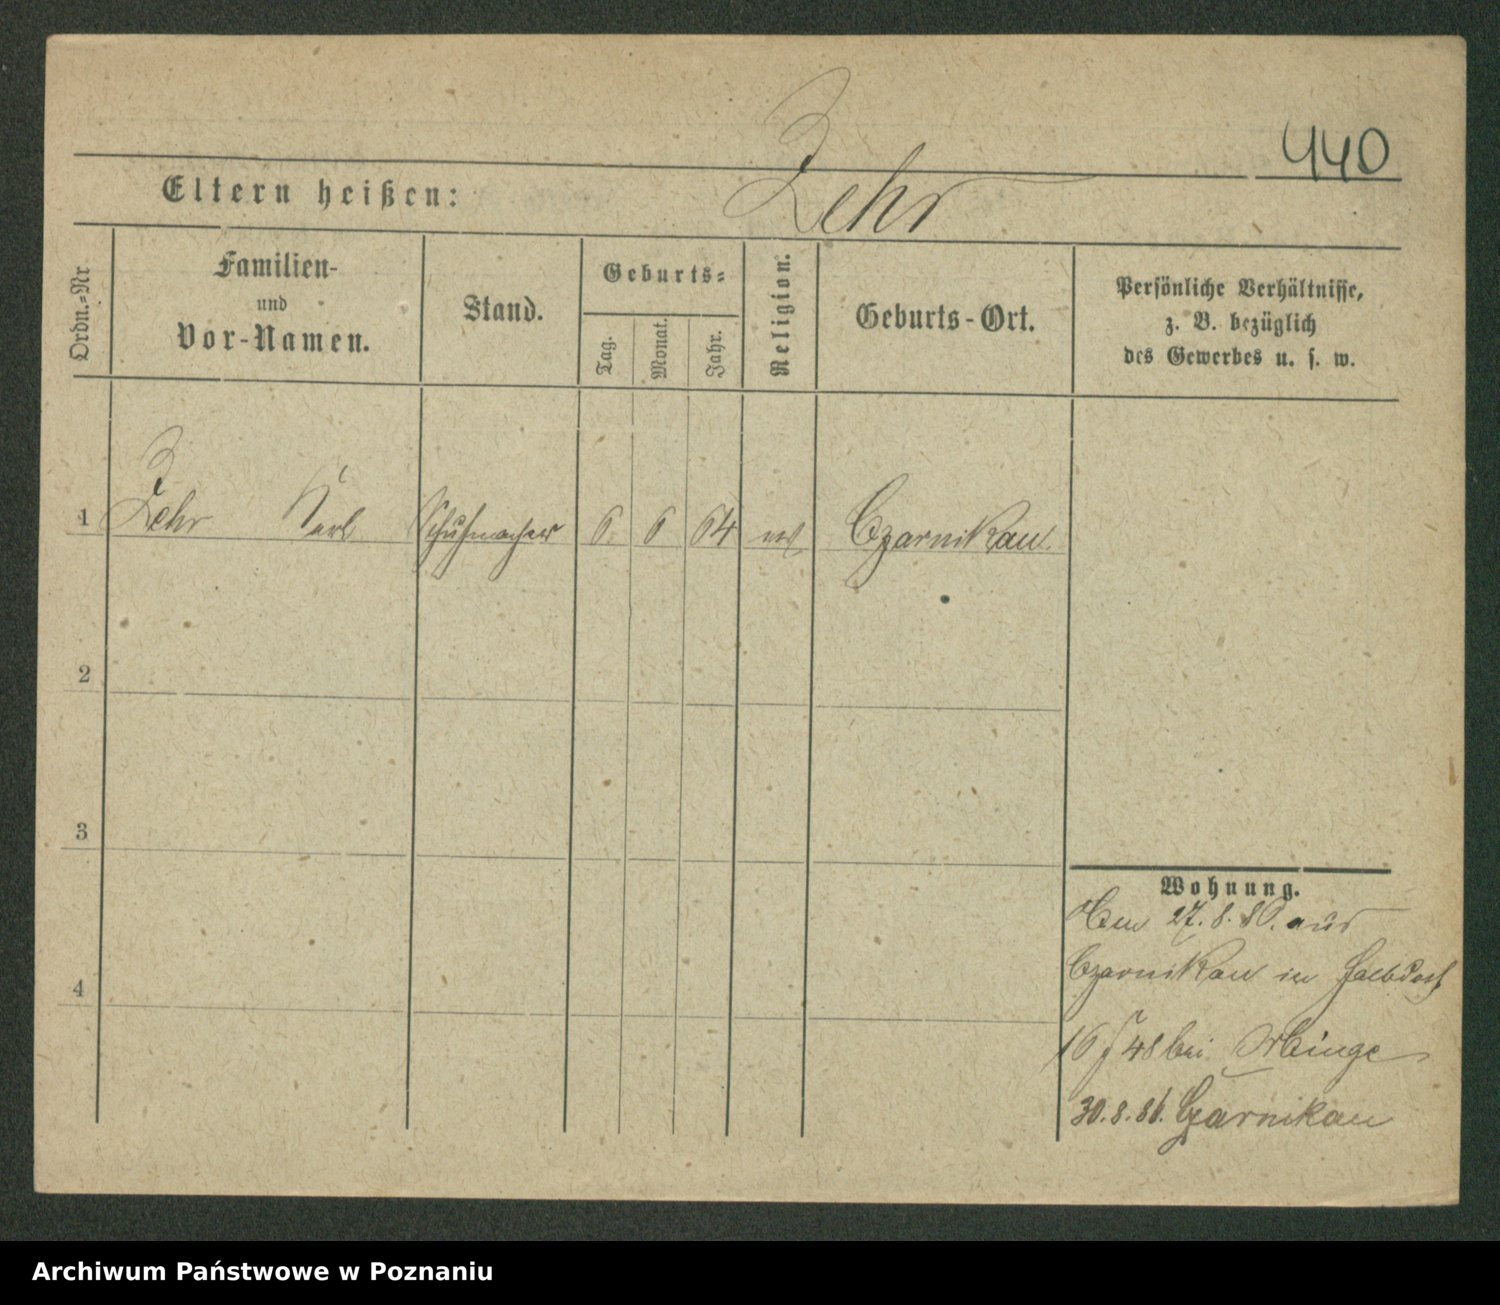 Zehr
440
Eltern heißen:
Ordn.=Nr
Familien-
und
Vor-Namen.
Stand.
Geburts=
Tag.
Monat.
Jahr.
Religion.
Geburts-Ort.
Persönliche Verhältnisse,
z. B. bezüglich
des Gewerbes u. s. w.
1 Zehr Karl Schuhmacher 6. 6 64 Czarnikau.
2
3
4
Wohnung.
27. 8. 86. aus
Czarnikau in
bei
30. 8. 86. Czarnikau
Archiwum Państwowe w Poznaniu